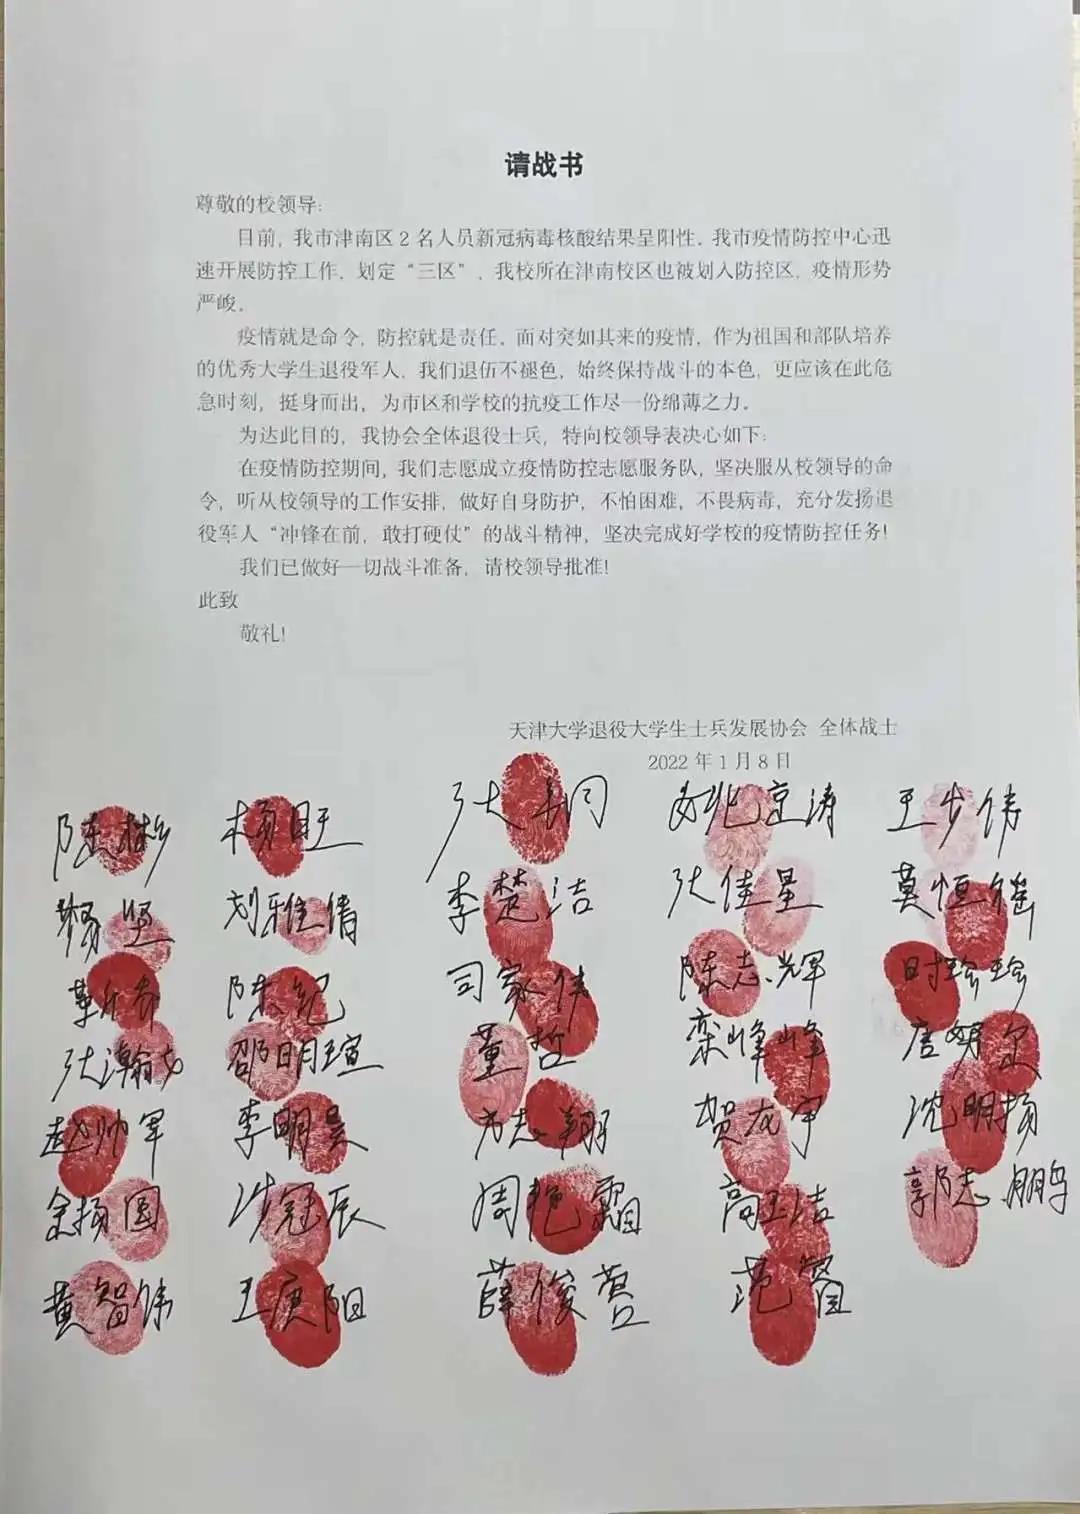 请战书
尊敬的校领导:
目前，我市津南区2名人员新冠病毒核酸结果呈阳性。我市疫情防控中心迅
速开展防控工作，划定“三区”，我校所在津南校区也被划入防控区，疫情形势
严峻。
疫情就是命令，防控就是责任。面对突如其来的疫情，作为祖国和部队培养
的优秀大学生退役军人，我们退伍不褪色，始终保持战斗的本色，更应该在此危
急时刻，挺身而出，为市区和学校的抗疫工作尽一份绵薄之力。
为达此目的，我协会全体退役士兵，特向校领导表决心如下:
在疫情防控期间，我们志愿成立疫情防控志愿服务队，坚决服从校领导的命
令，听从校领导的工作安排，做好自身防护，不怕困难，不畏病毒，充分发扬退
役军人“冲锋在前，敢打硬仗”的战斗精神，坚决完成好学校的疫情防控任务!
我们已做好一切战斗准备，请校领导批准!
此致
敬礼!
天津大学退役大学生士兵发展协会 全体战士
2022年1月8日
陈彬 杨旺 京涛 王步伟
杨坚 刘雅倩 李楚洁 张佳星 莫恒
陈纪 司家伟 陈志辉 时珍珍
张瀚文 邵明瑄 董哲 栾峰峰 唐
赵帅军 李明昊 志翔 贺友宇 沈明扬
余扬圆 沙冠辰 周艳霜 高玉洁 郭志鹏
黄智伟 王庚阳 薛俊营 范